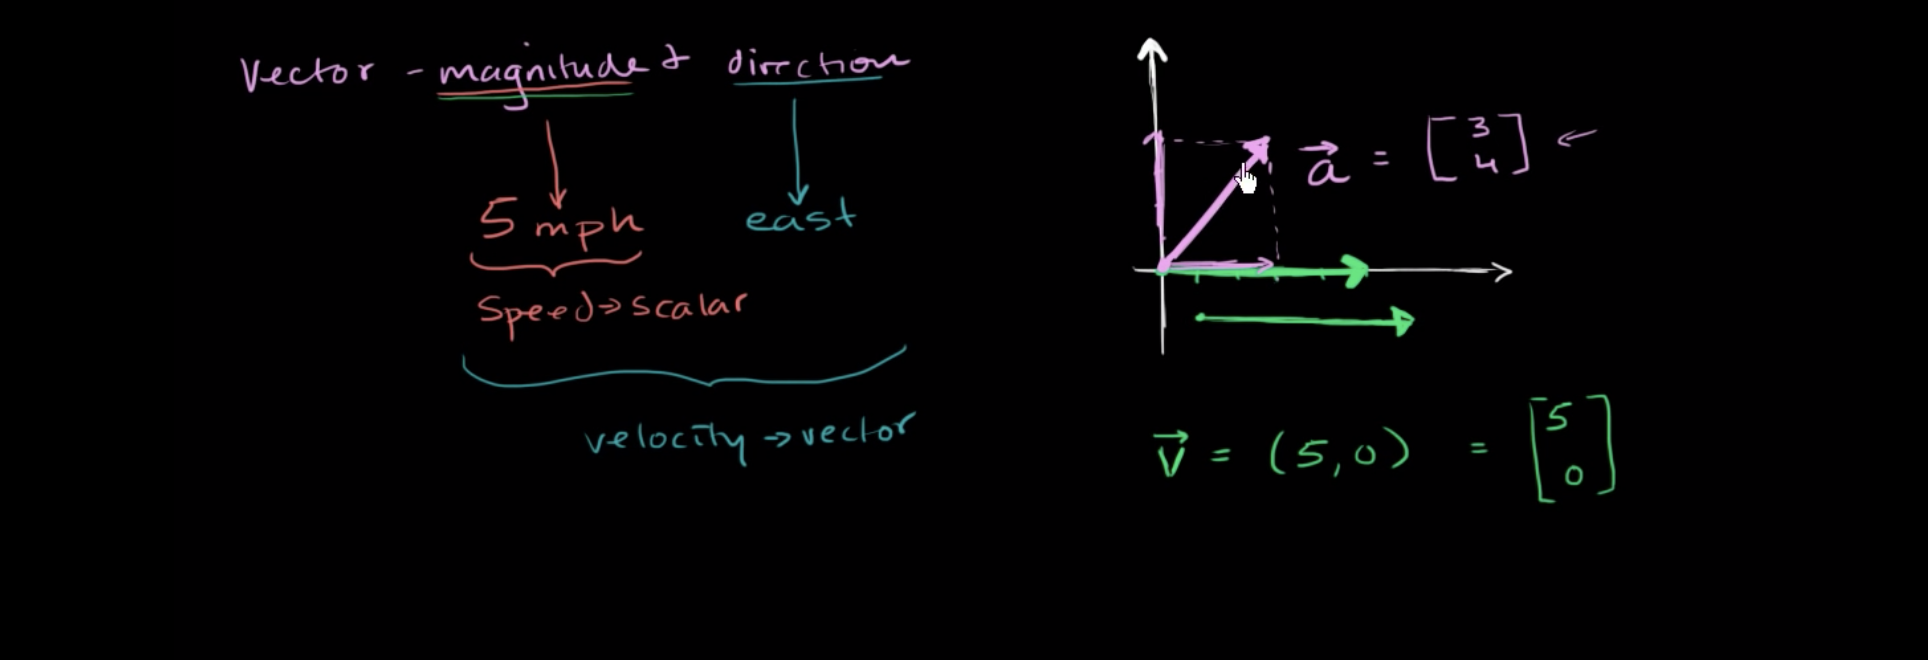 Vector - magnitude & direction
5 mph east
Speed → scalar
velocity → vector
a⃗ = [3 4] ←
v⃗ = (5,0) = [5 0]